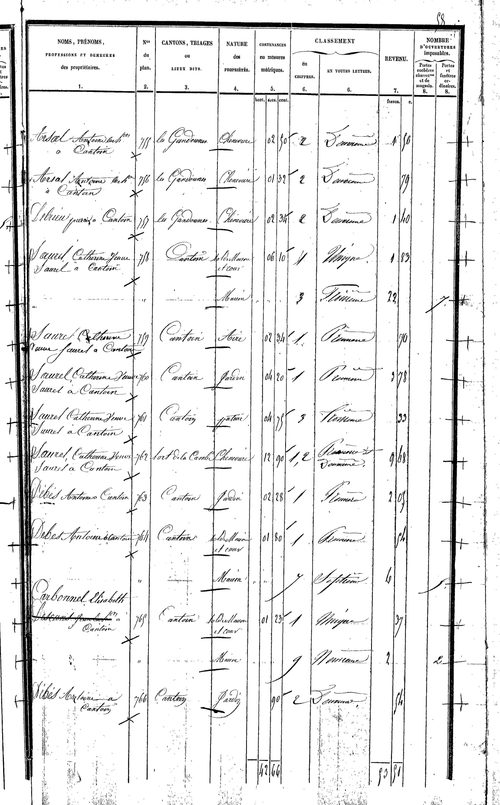 58
NOMS, PRÉNOMS, PROFESSIONS ET DEMEURES des propriétaires.
Nos du plan.
CANTONS, TRIAGES OU LIEUX DITS.
NATURE DES PROPRIÉTÉS.
CONTENANCES EN MESURES métriques.
CLASSEMENT
EN CHIFFRES.
EN TOUTES LETTRES.
REVENU.
NOMBRE D'OUVERTURES imposables.
1. 2. 3. 4. 5. 6. 6. 7. 8. 8.
hect. ares. cent. francs. c.
Arsal Antoine
à Cantoin 755 Chenevière 02 50 2 Deuxième 1 50
Arsal Antoine
à Cantoin 756 Chenevière 01 32 2 Deuxième 79
à Cantoin 757 Chenevière 02 34 2 Deuxième 1 40
Saurel Catherine Veuve
Saurel à Cantoin 758 Cantoin sol de Maison
et cour 06 10 4 Unique 1 83
" Maison 3 Troisième 22 7
Saurel Catherine
veuve Saurel à Cantoin 759 Cantoin Aire 02 34 1 Première 70
Saurel Catherine Veuve
Saurel à Cantoin 760 Cantoin Jardin 04 20 1 Première 3 78
Saurel Catherine Veuve
Saurel à Cantoin 761 Cantoin pature 04 75 3 Troisième 33
Saurel Catherine Veuve
Saurel à Cantoin 762 Chenevière 12 90 1, 2 Première et
Deuxième 9 68
Dibès Antoine Cantoin 763 Cantoin Jardin 02 28 1 Première 2 05
Dibès Antoine à Cantoin 764 Cantoin sol de Maison
et cour 01 80 1 Première 54
" Maison 7 Septième 6
Carbonnel Elisabeth
à Cantoin 765 Cantoin sol de Maison
et cour 01 23 1 Unique 37
" Maison 9 Neuvième 2 2
Dibès Antoine à
Cantoin 766 Cantoin Jardin 90 2 Deuxième 54
42 66 53 51